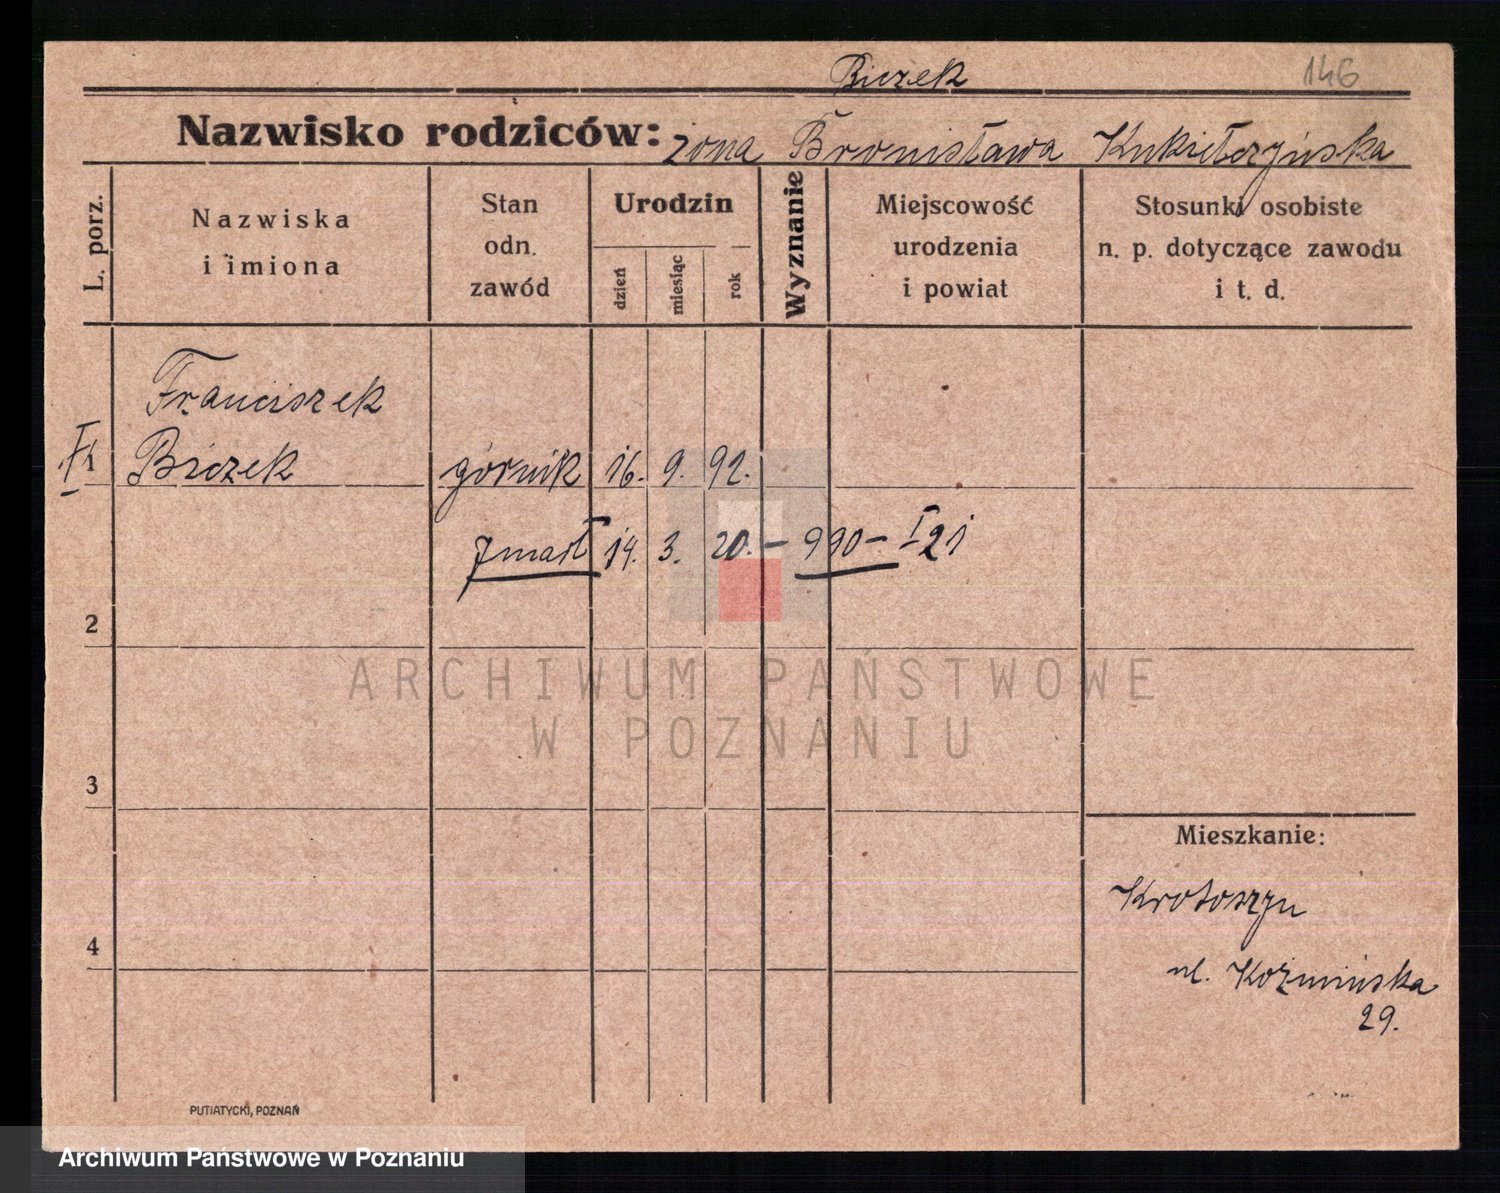 Biczek 146
Nazwisko rodziców: żona Bronisława Kukiełczyńska
L. porz.
Nazwiska
i imiona
Stan
odn.
zawód
Urodzin
dzień
miesiąc
rok
Wyznanie
Miejscowość
urodzenia
i powiat
Stosunki osobiste
n. p. dotyczące zawodu
i t. d.
Franciszek
1 Biczek górnik 16. 9. 92.
zmarł 14. 3. 20. – 990 – I 21
2
ARCHIWUM PAŃSTWOWE
W POZNANIU
3
Mieszkanie:
Krotoszyn
4
ul. Koźmińska
29.
PUTIATYCKI, POZNAŃ
Archiwum Państwowe w Poznaniu